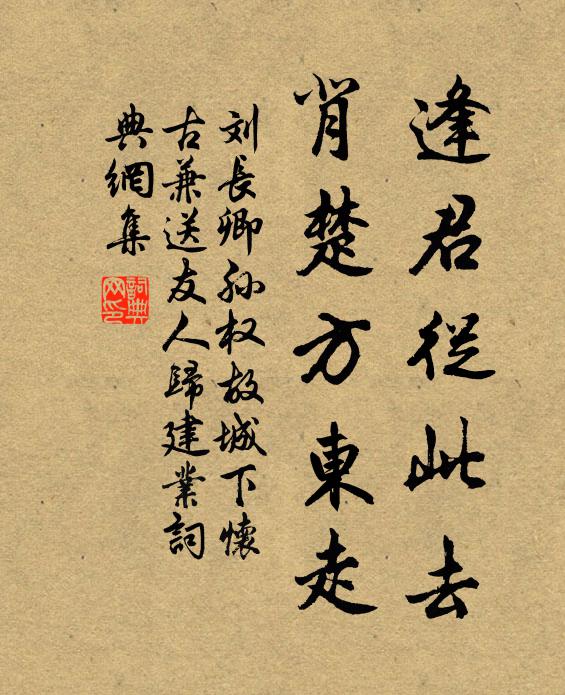 逢君從此去
背楚方東走
刘長卿孙权故城下懷
古兼送友人歸建業詞
典網集
詞典
网印